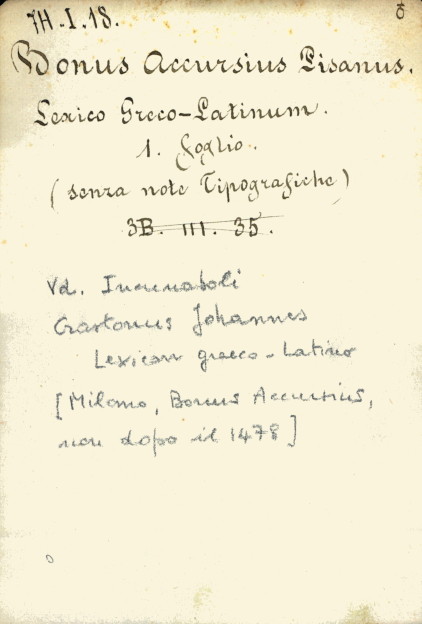 7H-I.18. 8
Bonus Accursius Pisanus.
Lexico Greco-Latinum.
1. foglio.
(senza note Tipografiche)
3B. III. 35.
Vd. Incunaboli
Crastonus Johannes
Lexicon graeco-latino
[Milano, Bonus Accursius,
non dopo il 1478]